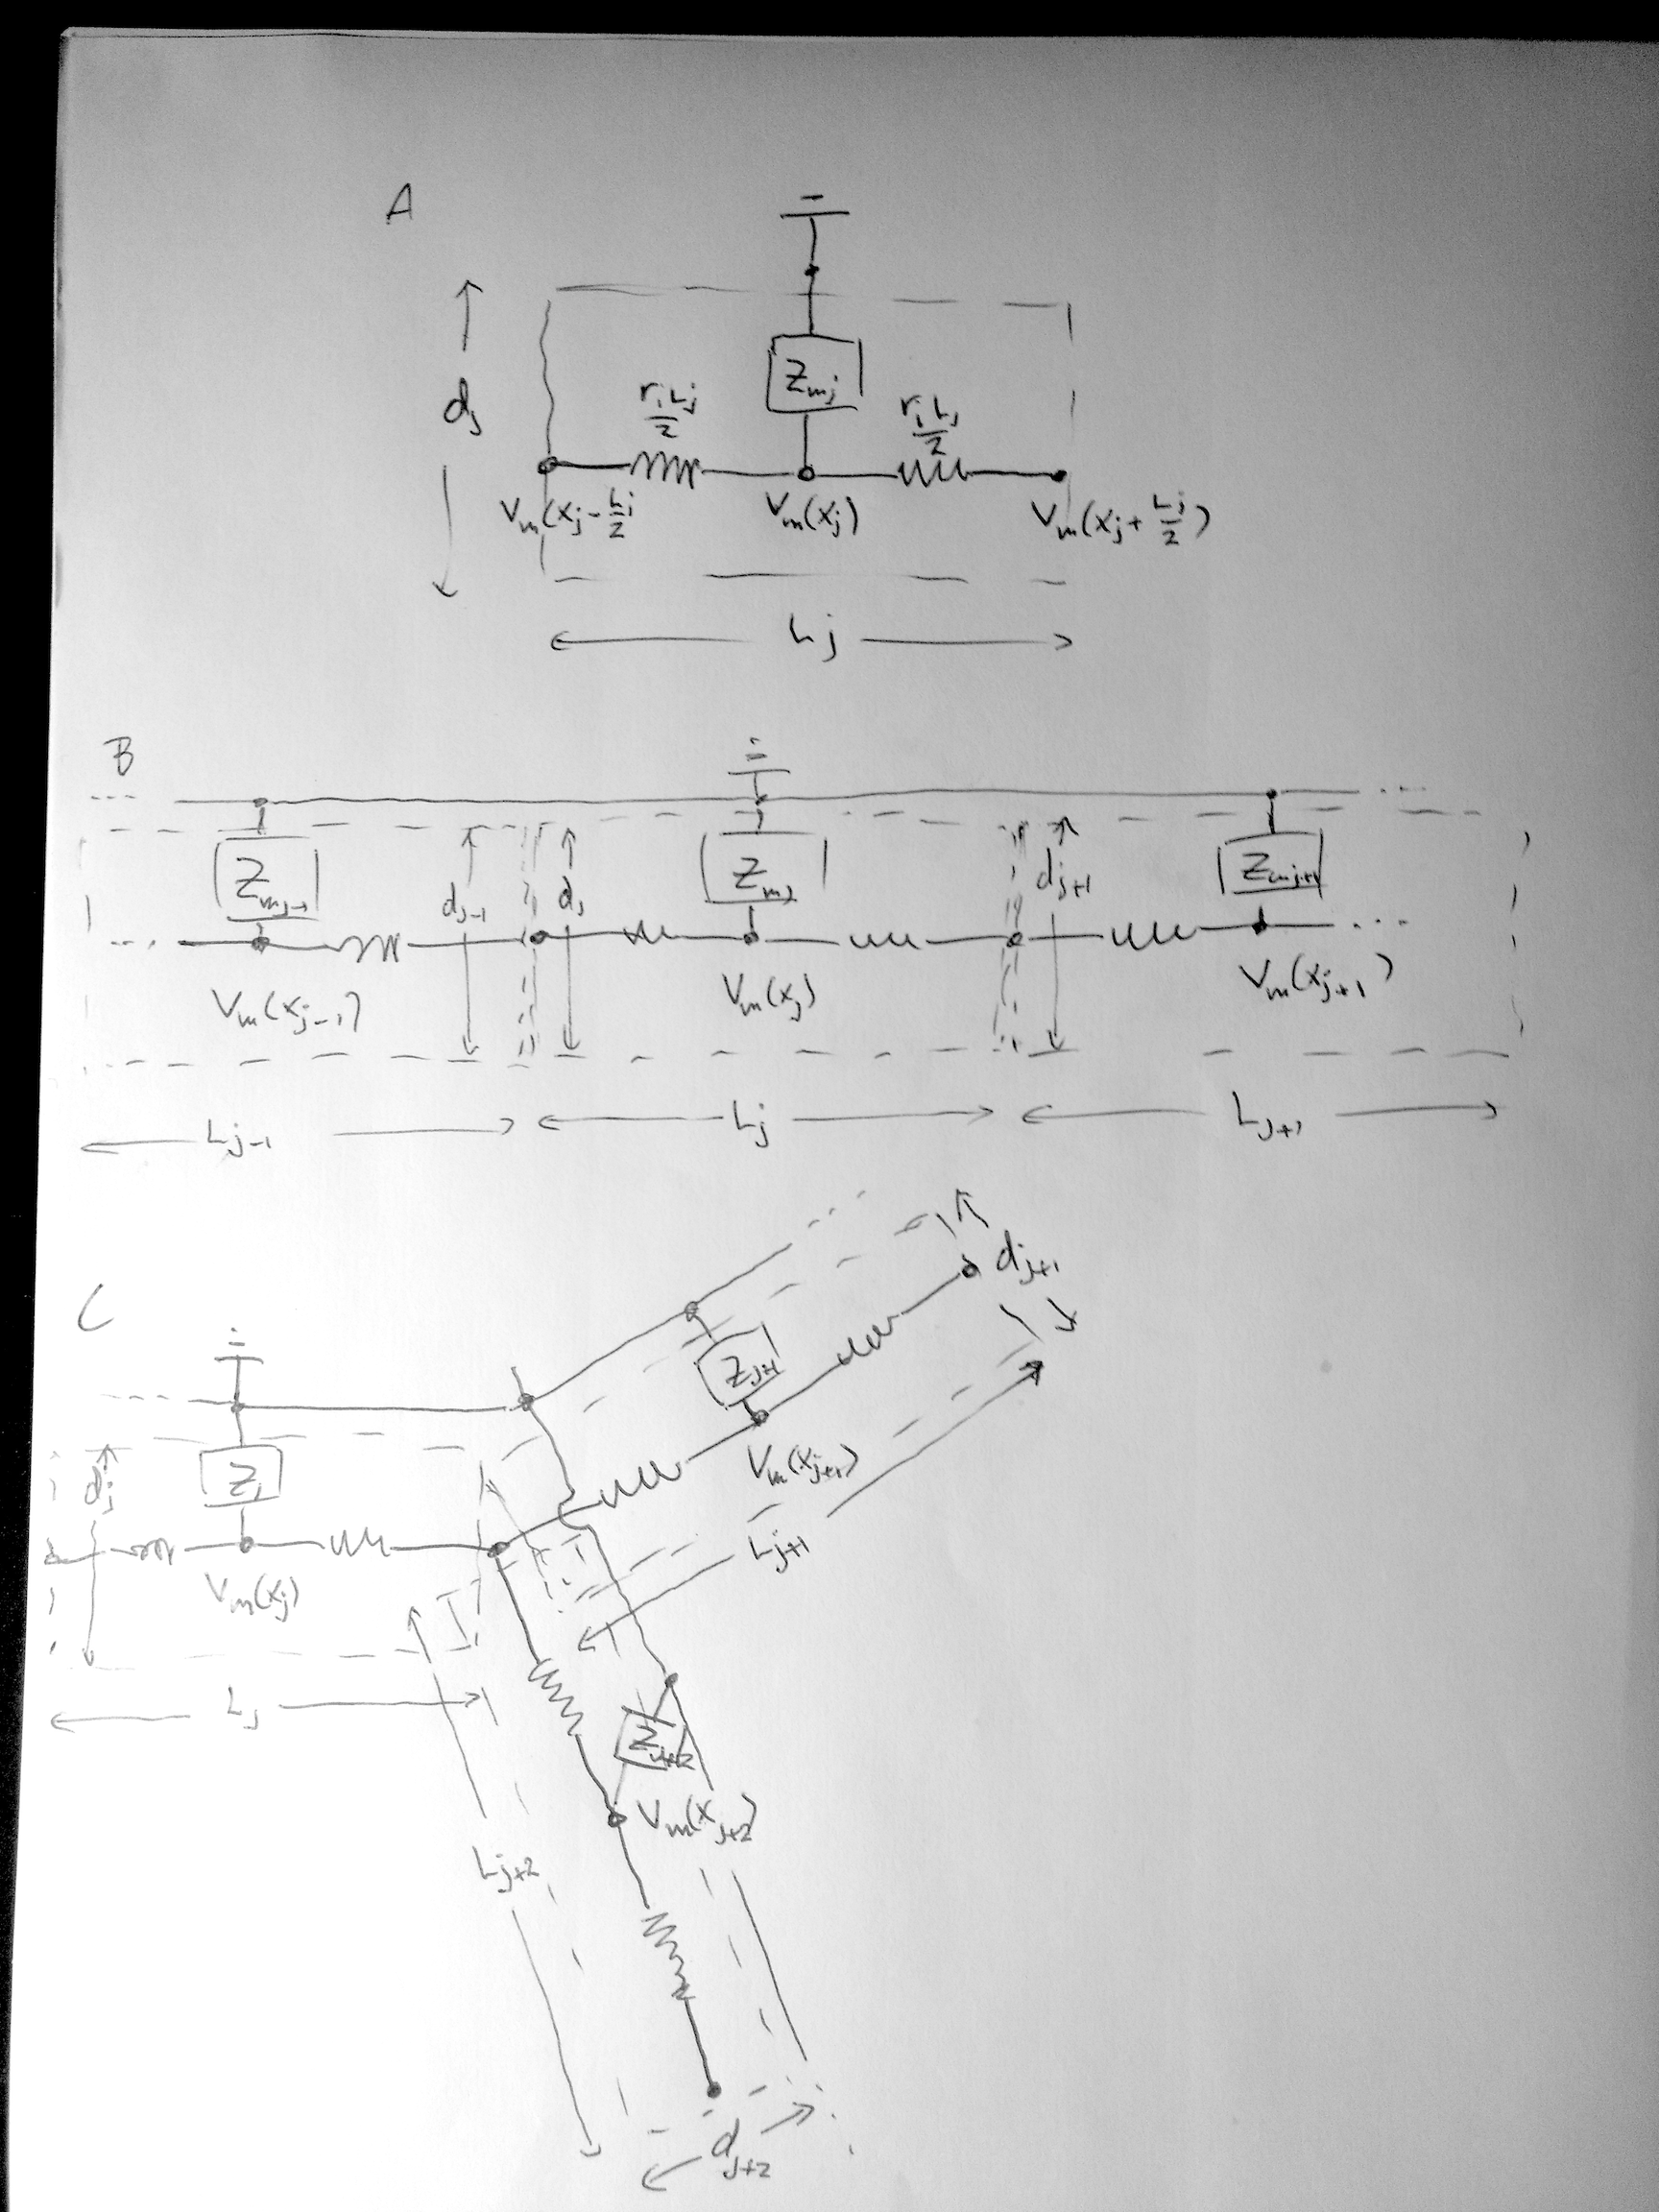 A
d_j
Z_mj
r_i L_j / 2
r_i L_j / 2
V_m(x_j - L_j/2
V_m(x_j)
V_m(x_j + L_j/2)
L_j
B
...
...
Z_mj-1
d_j-1
d_j
Z_mj
d_j+1
Z_mj+1
...
...
V_m(x_j-1)
V_m(x_j)
V_m(x_j+1)
L_j-1
L_j
L_j+1
C
...
...
d_j+1
Z_j+1
d_j
Z_j
V_m(x_j+1)
V_m(x_j)
L_j+1
L_j
Z_j+2
V_m(x_j+2)
L_j+2
d_j+2